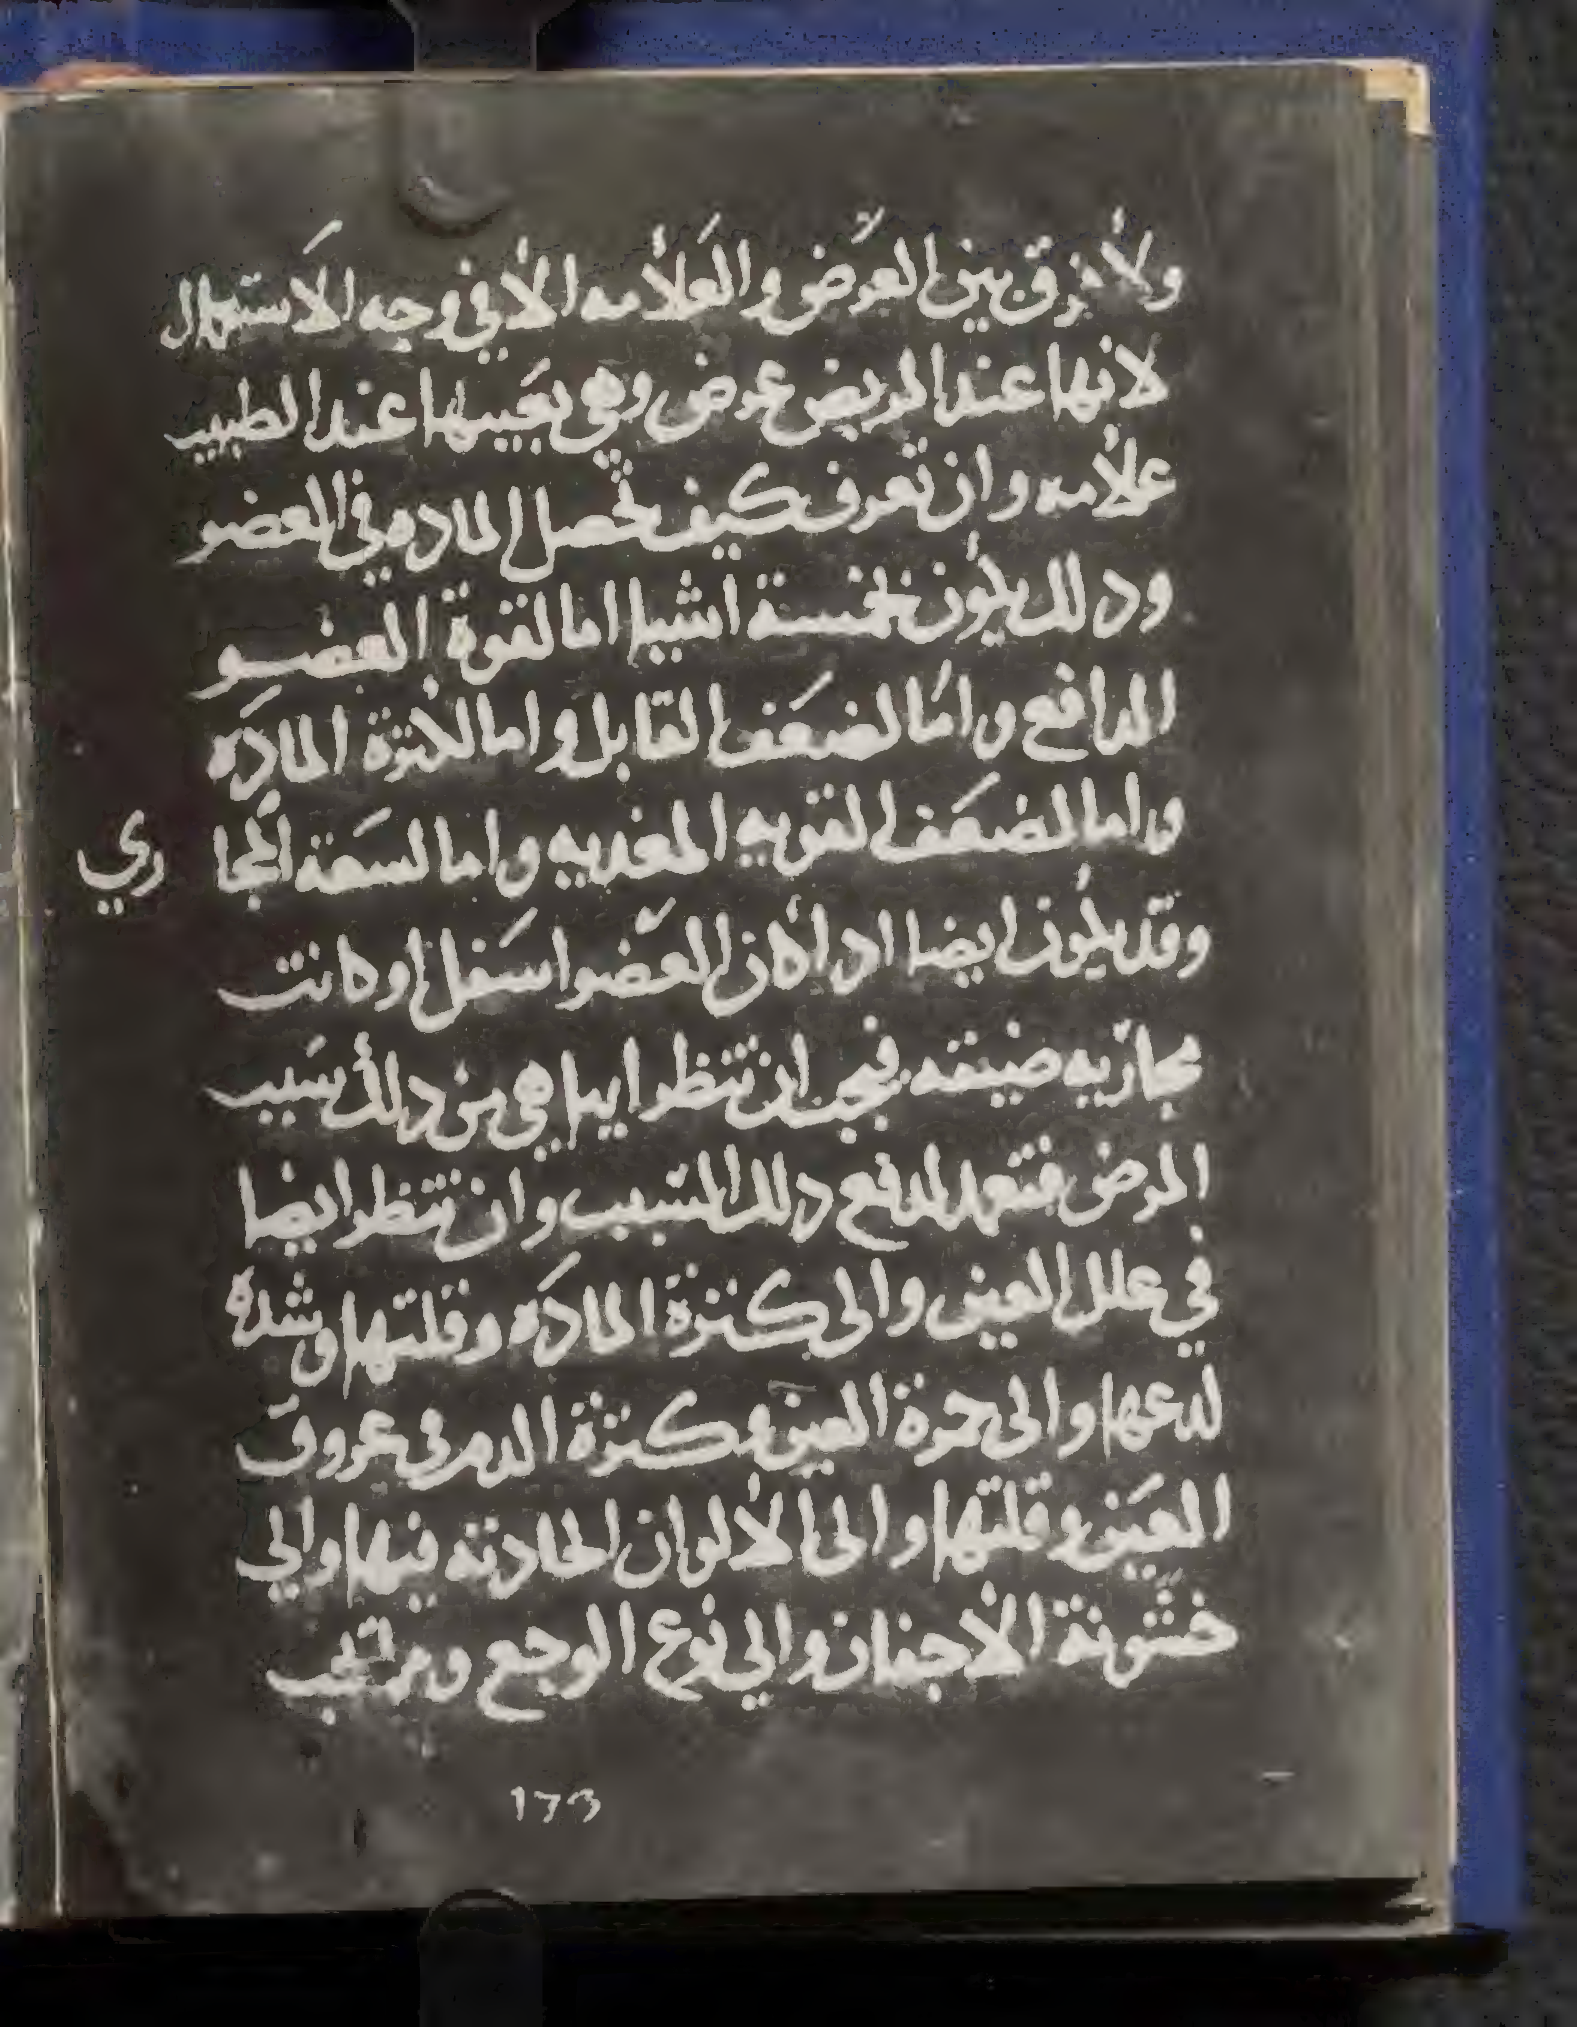 ولا فرق بين العرض والعلامه الا في وجه الاستعمال
لانها عند المريض عرض وهي بعينها عند الطبيب
علامه وان تعرف كيف تحصل الماده في العضو
ودلك يكون لخمسة اشيا اما لقوة العضو
الدافع واما لضعف القابل واما لكثرة الماده
واما لضعف القويه المغديه واما لسعة المجا
ري
وقد يكون ايضا ادا كان العضو اسفل او كانت
مجاريه ضيقه فيجب ان تنظر ايما هي من دلك سبب
المرض فتعمد لدفع دلك السبب وان تنظر ايضا
في علل العين والى كثرة الماده وقلتها وشده
لدعها والى حمرة العين وكثرة الدم في عروق
العين وقلتها والى الالوان الحادثه فيها والي
خشونة الاجفان والي نوع الوجع ومراتب
173